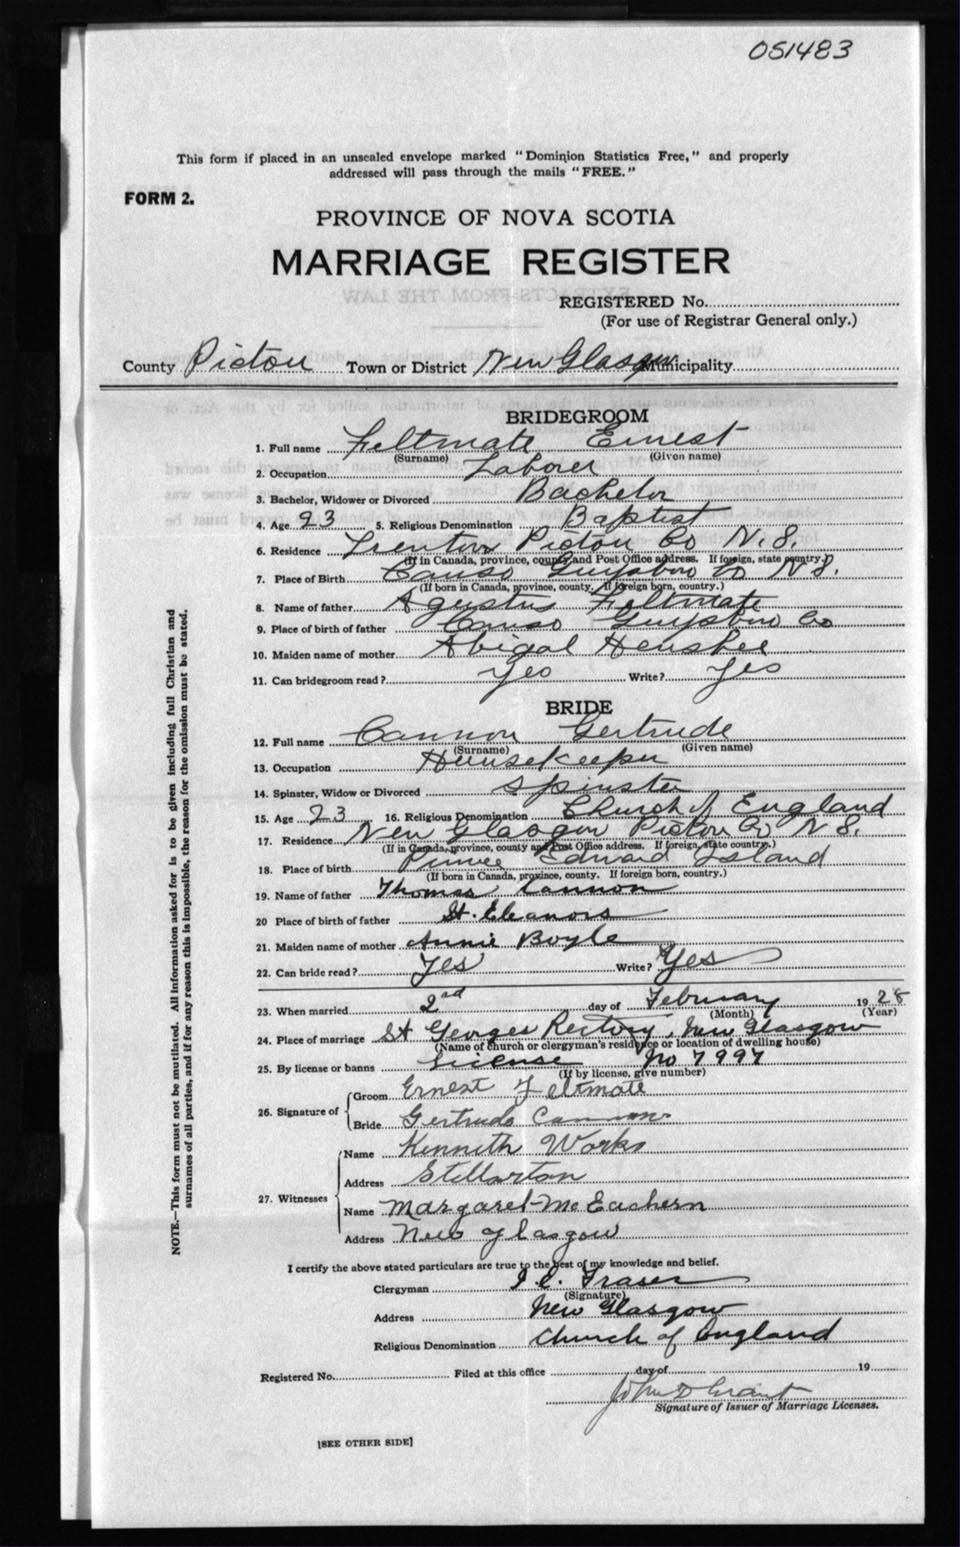 051483
This form if placed in an unsealed envelope marked "Dominion Statistics Free," and properly
addressed will pass through the mails "FREE."
FORM 2.
PROVINCE OF NOVA SCOTIA
MARRIAGE REGISTER
EXTRACTS FROM THE LAW
REGISTERED No.
(For use of Registrar General only.)
County Pictou Town or District New Glasgow Municipality
BRIDEGROOM
1. Full name Feltmate Ernest
(Surname) (Given name)
2. Occupation Laborer
3. Bachelor, Widower or Divorced Bachelor
4. Age 23 5. Religious Denomination Baptist
6. Residence Trenton Pictou Co N.S.
(If in Canada, province, county and Post Office address. If foreign, state country.)
7. Place of Birth Canso Guysboro Co N S.
(If born in Canada, province, county. If foreign born, country.)
8. Name of father Agustus Feltmate
9. Place of birth of father Canso Guysboro Co
10. Maiden name of mother Abigal
11. Can bridegroom read? Yes Write? Yes
BRIDE
12. Full name Cannon Gertrude
(Surname) (Given name)
13. Occupation Housekeeper
14. Spinster, Widow or Divorced Spinster
15. Age 23 16. Religious Denomination Church of England
17. Residence New Glasgow Pictou Co N S.
(If in Canada, province, county and Post Office address. If foreign, state country.)
18. Place of birth Prince Edward Island
(If born in Canada, province, county. If foreign born, country.)
19. Name of father Thomas Cannon
20 Place of birth of father St. Eleanors
21. Maiden name of mother Annie Boyle
22. Can bride read? Yes Write? Yes
23. When married 2nd day of February 1928
(Month) (Year)
24. Place of marriage St Georges Rectory, New Glasgow
(Name of church or clergyman's residence or location of dwelling house)
25. By license or banns License No 7997
(If by license, give number)
26. Signature of Groom Ernest Feltmate
Bride Gertrude Cannon
27. Witnesses Name Kenneth Works
Address Stellarton
Name Margaret McEachern
Address New Glasgow
I certify the above stated particulars are true to the best of my knowledge and belief.
Clergyman Fraser
(Signature)
Address New Glasgow
Religious Denomination Church of England
Registered No. Filed at this office day of 19
John D Grant
Signature of Issuer of Marriage Licenses.
[SEE OTHER SIDE]
NOTE.—This form must not be mutilated. All information asked for is to be given including full Christian and
surnames of all parties, and if for any reason this is impossible, the reason for the omission must be stated.